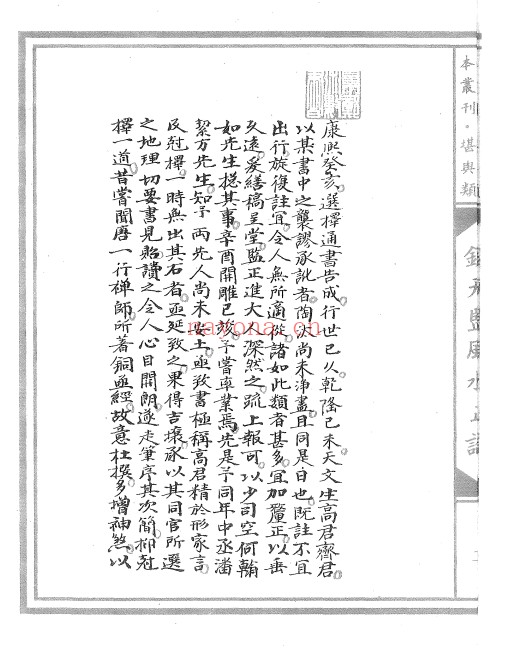 本叢刊·堪輿類
欽天監風水正論
康熙癸亥選擇通書告成行世已久乾隆己未天文生高君齊君
以其書中之襲謬承訛者陶汰尚未淨盡且同是日也既註不宜
出行旋復註宜令人無所適從諸如此類者甚多宜加釐正以垂
久遠爰繕稿呈堂監正進大人深然之疏上報可以少司空何輔
如先生總其事辛酉開雕已竣予嘗卒業焉先是予同年中丞潘
絜方先生知予兩先人尚未安土亟致書極稱高君精於形家言
及尅擇一時無出其右者亟延致之果得吉壤承以其同官所選
之地理切要書見貽讀之令人心目開朗遂走筆序其次簡抑尅
擇一道昔嘗聞唐一行禅師所著銅函經故意杜撰多增神煞以
nayona.cn